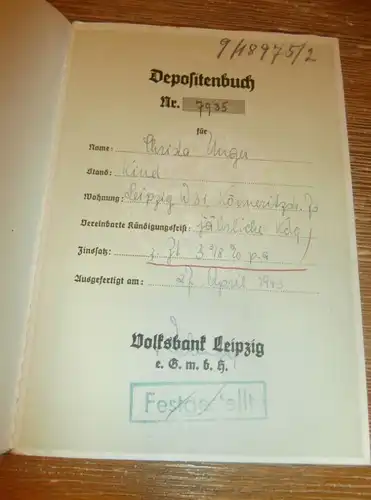 9/18975/2
Depositenbuch
Nr. 7935
für
Name: Christa Unger
Stand: Kind
Wohnung: Leipzig
Vereinbarte Kündigungsfrist: jährliche Kdg
Zinssatz: z. Zt 3 % p.a
Ausgefertigt am: 27 April
Volksbank Leipzig
e. G. m. b. H.